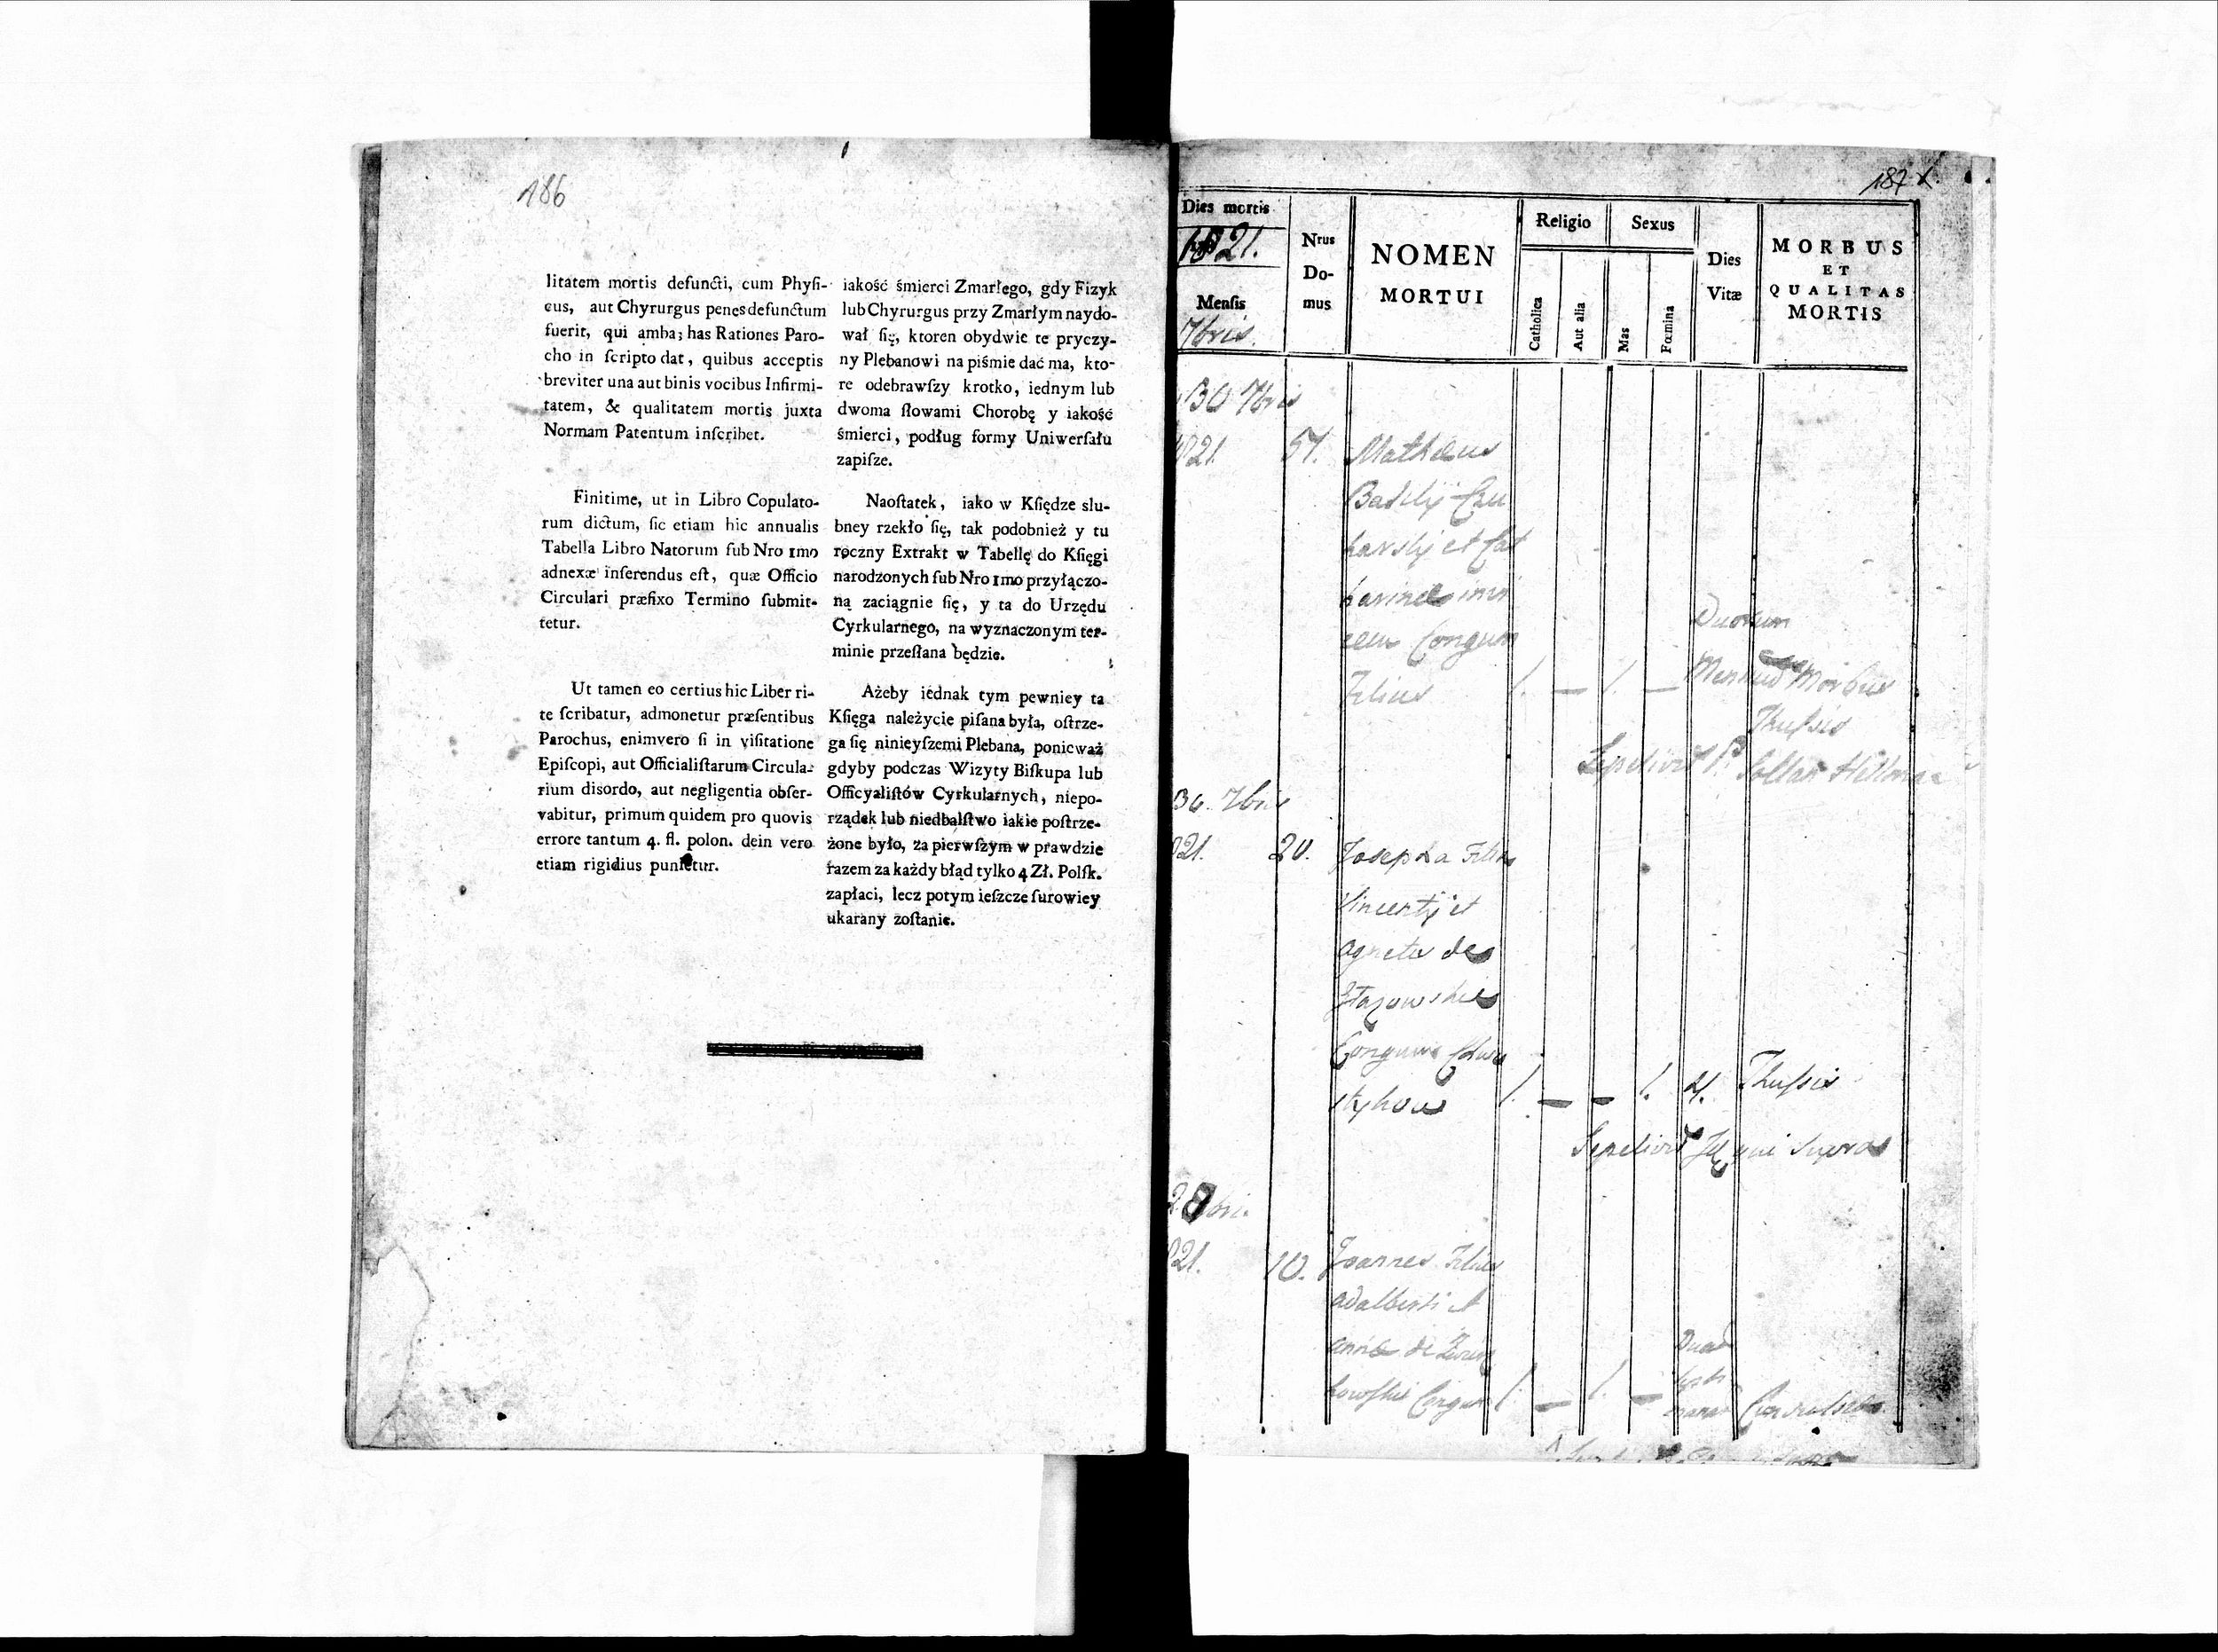 186
litatem mortis defuncti, cum Phyſi-
cus, aut Chyrurgus penes defunctum
fuerit, qui ambaʒ has Rationes Paro-
cho in ſcripto dat, quibus acceptis
breviter una aut binis vocibus Infirmi-
tatem, & qualitatem mortis juxta
Normam Patentum inſcribet.
Finitime, ut in Libro Copulato-
rum dictum, ſic etiam hic annualis
Tabella Libro Natorum ſub Nro 1mo
adnexæ inſerendus eſt, quæ Officio
Circulari præfixo Termino ſubmit-
tetur.
Ut tamen eo certius hic Liber ri-
te ſcribatur, admonetur præſentibus
Parochus, enimvero ſi in viſitatione
Epiſcopi, aut Officialiſtarum Circula-
rium disordo, aut negligentia obſer-
vabitur, primum quidem pro quovis
errore tantum 4. fl. polon. dein vero
etiam rigidius punietur.
iakość śmierci Zmarłego, gdy Fizyk
lub Chyrurgus przy Zmarłym naydo-
wał ſię, ktoren obydwie te pryczy-
ny Plebanowi na piśmie dać ma, kto-
re odebrawſzy krotko, iednym lub
dwoma ſłowami Chorobę y iakość
śmierci, podług formy Uniwerſału
zapiſze.
Naoſtatek, iako w Kſiędze slu-
bney rzekło ſię, tak podobnież y tu
roczny Extrakt w Tabellę do Kſięgi
narodzonych ſub Nro 1mo przyłączo-
ną zaciągnie ſię, y ta do Urzędu
Cyrkularnego, na wyznaczonym ter-
minie przeſłana będzie.
Ażeby iednak tym pewniey ta
Kſięga należycie piſana była, oſtrze-
ga ſię ninieyſzemi Plebana, ponieważ
gdyby podczas Wizyty Biſkupa lub
Officyaliſtów Cyrkularnych, niepo-
rządek lub niedbalſtwo iakie poſtrze-
żone było, za pierwſzym w prawdzie
razem za każdy błąd tylko 4 Zł. Polſk.
zapłaci, lecz potym ieſzcze ſurowiey
ukarany zoſtanie.
187
Dies mortis
1821.
Menſis
7bris.
Nrus
Do-
mus
NOMEN
MORTUI
Religio
Catholica
Aut alia
Sexus
Mas
Fœmina
Dies
Vitæ
MORBUS
ET
QUALITAS
MORTIS
30 7bris
821. 57. Mathæus
et Cat
harinæ
Congum
Filius 1. — 1. —
Duorum
Mensium Morbus
Thuſsis
Sepelivit P.
30. 7bris
821. 20. Josepha Filia
Vincentij et
Agnetis de
Congum
1. — — 1. Thuſsis
Sepelivit Id qui Supra
821. 10. Joannes Filius
Adalberti et
Annæ de
Congum 1. — 1. —